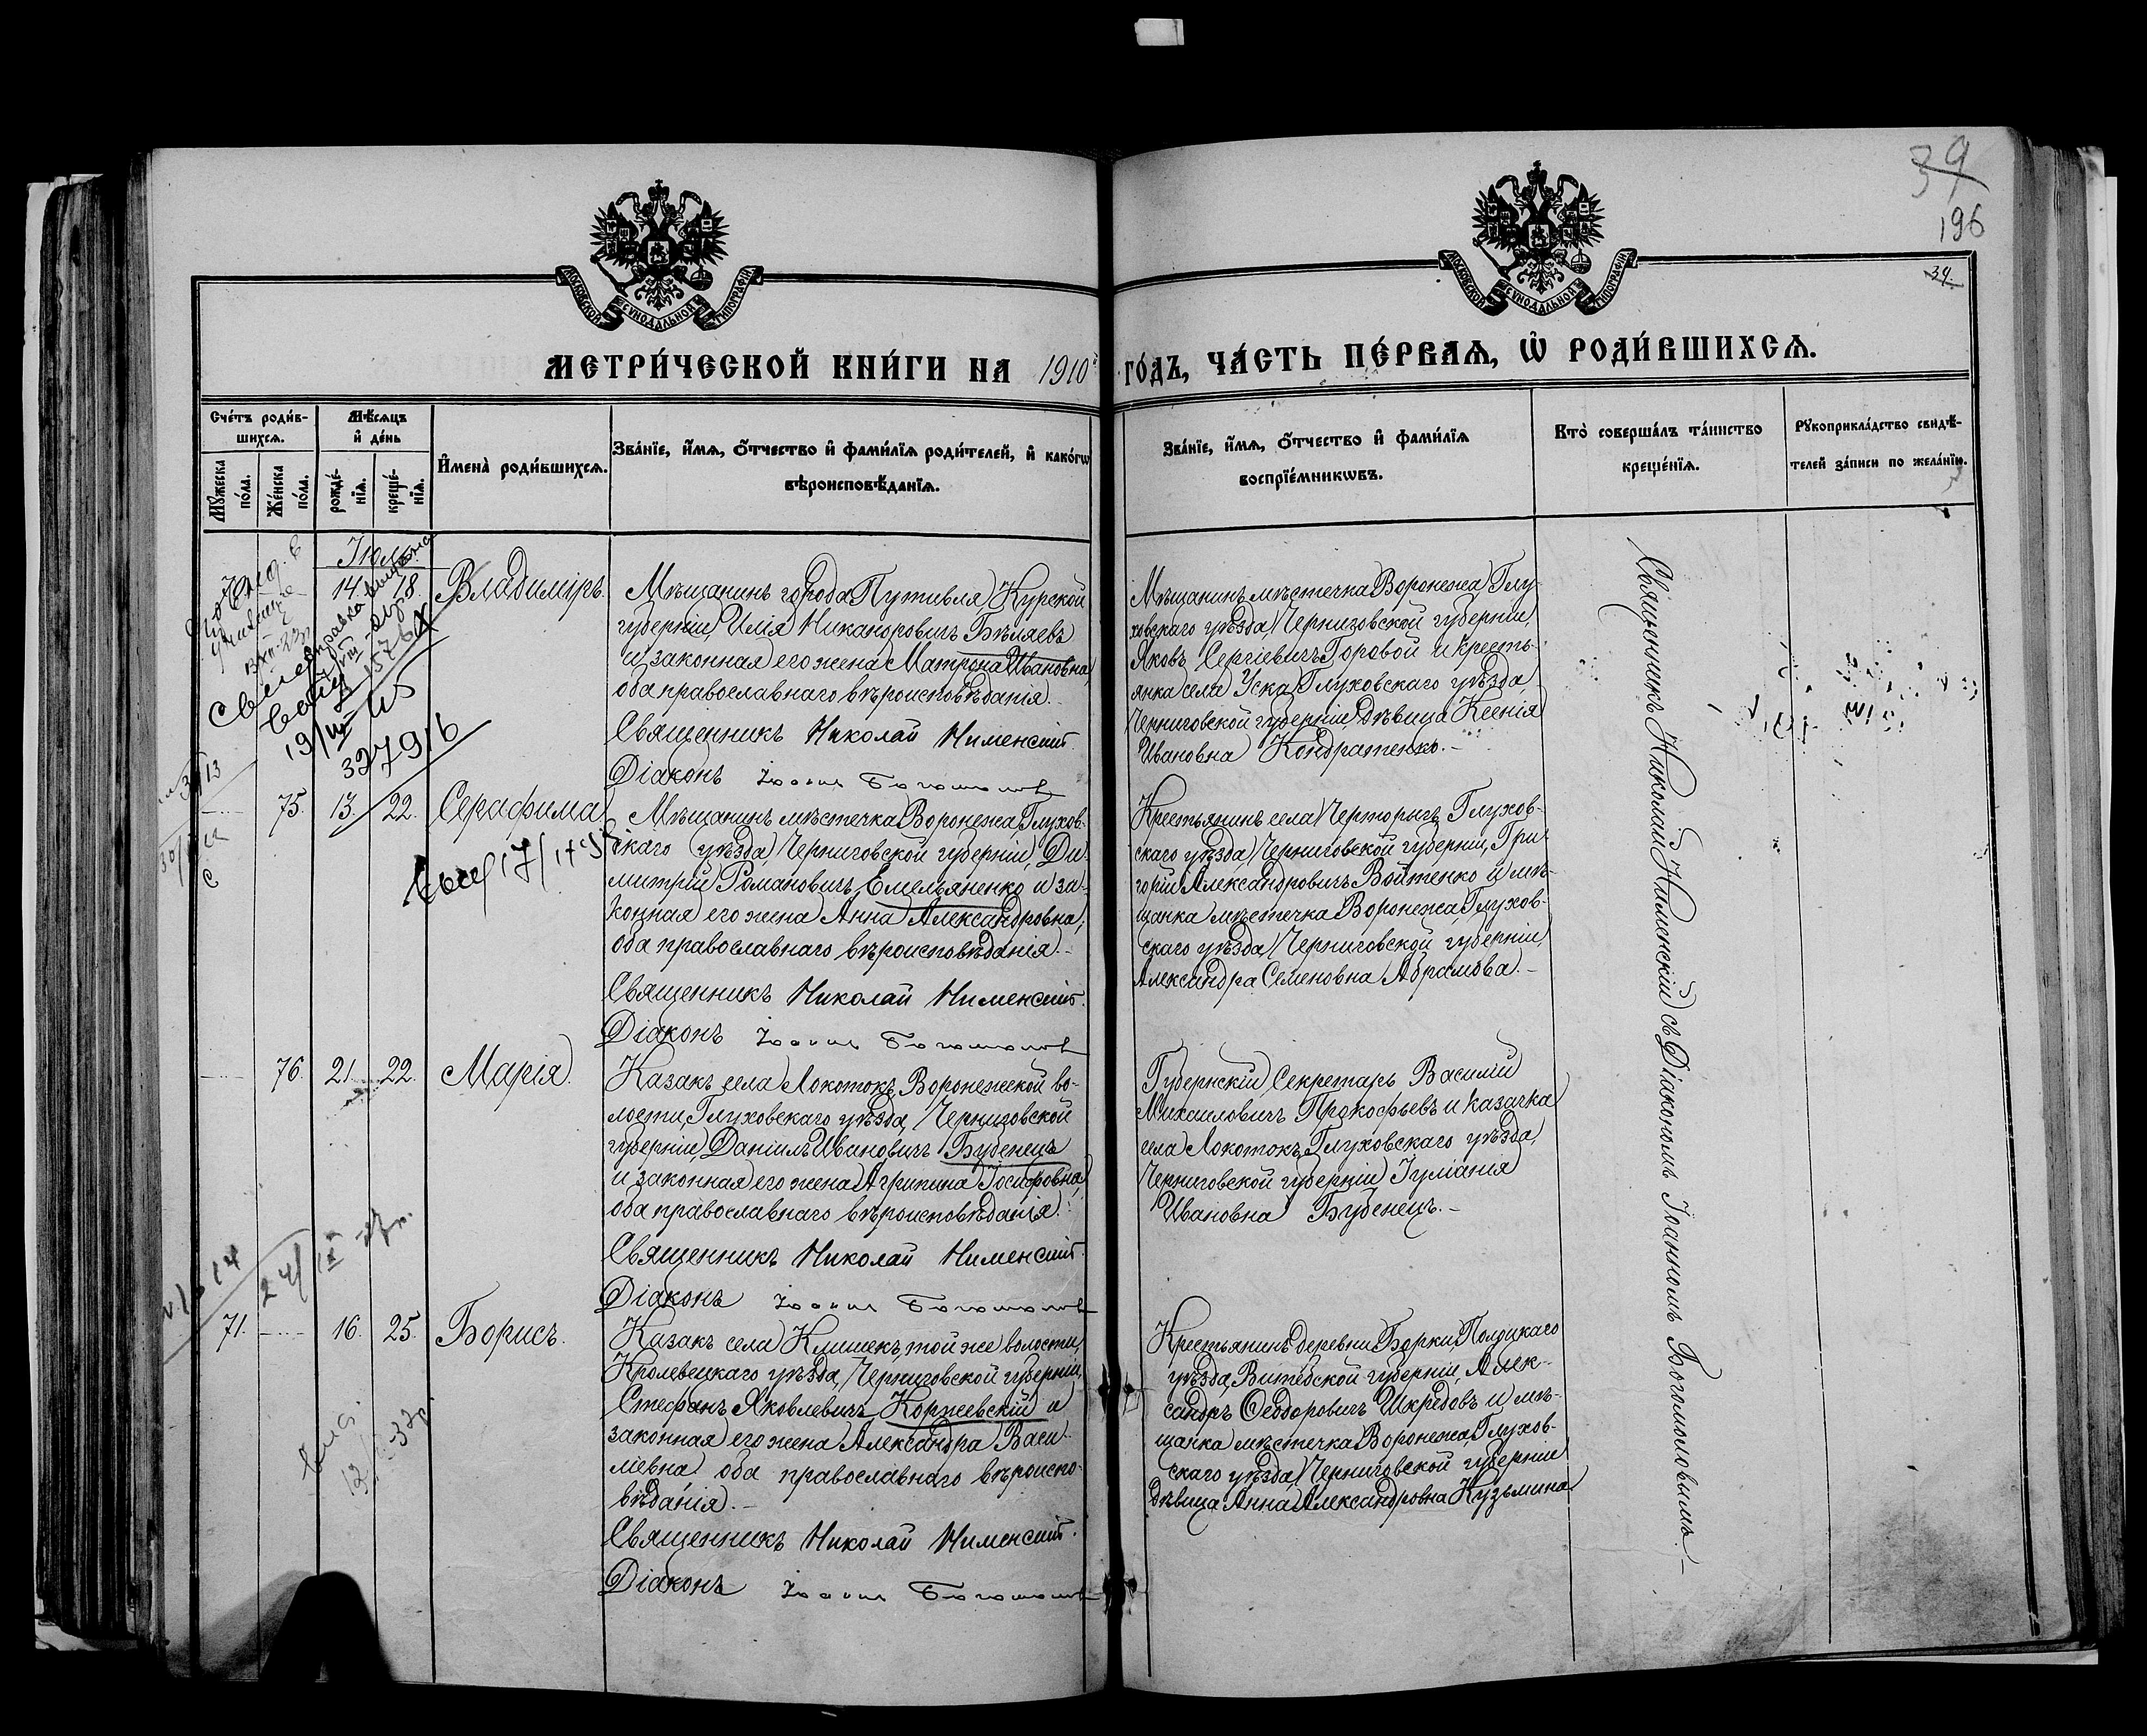 39
196
34.
МОСКОВСКОЙ СѴНОДАЛЬНОЙ ТИПОГРАФІИ
МОСКОВСКОЙ СѴНОДАЛЬНОЙ ТИПОГРАФІИ
МЕТРИ́ЧЕСКОЙ КНИ́ГИ НА 1910й ГО́ДЪ, ЧА́СТЬ ПЕ́РВАѦ, Ѡ҆ РОДИ́ВШИХСѦ.
Сче́тъ роди́в-
шихсѧ.
Мѹ́жеска по́ла.
Же́нска по́ла.
Мѣ́сѧцъ и҆ де́нь
рожде́-нїѧ.
креще́-нїѧ.
И҆мена̀ роди́вшихсѧ.
Зва́нїе, и҆́мѧ, ѻ҆́тчество и҆ фами́лїѧ роди́телей, и҆ како́гѡ
вѣроисповѣ́данїѧ.
Зва́нїе, и҆́мѧ, ѻ҆́тчество и҆ фами́лїѧ
воспрїе́мникѡвъ.
Кто̀ соверша́лъ та́инство
креще́нїѧ.
Рѹкоприкла́дство свидѣ́-
телей за́писи по жела́нїю.
Іюль.
14. 18. Владиміръ.
Мѣщанинъ города Путивля, Курской
губерніи, Илія Никандровичъ Бѣляевъ
и законная его жена Матрона Ивановна,
оба православнаго вѣроисповѣданія.
Священникъ Николай Нименскій.
Діаконъ Іоаннъ Богомоловъ
Мѣщанинъ мѣстечка Воронежа, Глу-
ховскаго уѣзда, Черниговской губерніи,
Яковъ Сергіевичъ Горовой и кресть-
янка села Уска, Глуховскаго уѣзда,
Черниговской губерніи, дѣвица Ксенія
Ивановна Кондратенко.-
327916
75. 13. 22. Серафима.
Мѣщанинъ мѣстечка Воронежа, Глухов-
скаго уѣзда, Черниговской губерніи, Ди-
митрій Романовичъ Емельяненко и за-
конная его жена Анна Александровна,
оба православнаго вѣроисповѣданія.-
Священникъ Николай Нименскій.
Діаконъ Іоаннъ Богомоловъ
Крестьянинъ села Черторыгъ, Глухов-
скаго уѣзда, Черниговской губерніи, Гри-
горій Александровичъ Войтенко и мѣ-
щанка мѣстечка Воронежа, Глухов-
скаго уѣзда, Черниговской губерніи,
Александра Семеновна Абрамова.-
76. 21. 22. Марія.
Казакъ села Локотокъ, Воронежской во-
лости, Глуховскаго уѣзда, Черниговской
губерніи, Даніилъ Ивановичъ Бубенецъ
и законная его жена Агрипина Іосифовна,
оба православнаго вѣроисповѣданія.
Священникъ Николай Нименскій.
Діаконъ Іоаннъ Богомоловъ
Губернскій Секретарь Василій
Михаиловичъ Прокофьевъ и казачка
села Локотокъ, Глуховскаго уѣзда,
Черниговской губерніи Іуліанія
Ивановна Бубенецъ.-
71. 16. 25. Борисъ.
Казакъ села Клишекъ, той же волости,
Кролевецкаго уѣзда, Черниговской губерніи,
Стефанъ Яковлевичъ Коржевскій и
законная его жена Александра Васи-
ліевна, оба православнаго вѣроиспо-
вѣданія.-
Священникъ Николай Нименскій.
Діаконъ Іоаннъ Богомоловъ
Крестьянинъ деревни Борки, Полоцкаго
уѣзда, Витебской губерніи, Алек-
сандръ Ѳеодоровичъ Шкредовъ и мѣ-
щанка мѣстечка Воронежа, Глухов-
скаго уѣзда, Черниговской губерніи
дѣвица Анна Александровна Кузьмина
Священникъ Николай Нименскій съ Діакономъ Іоанномъ Богомоловымъ.-